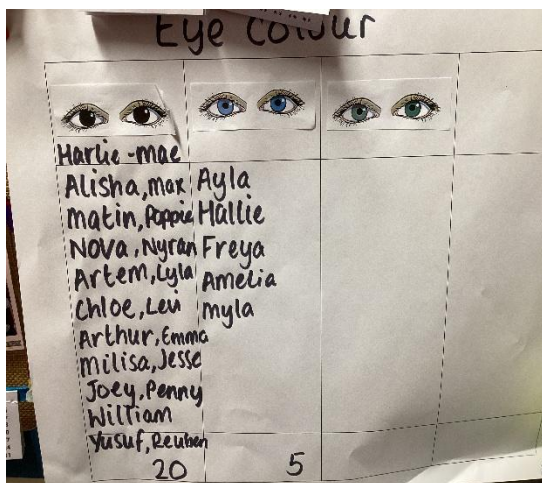 Eye Colour
Harlie-mae
Alisha, max
Matin, Poppie
Nova, Nyran
Artem, Lyla
Chloe, Levi
Arthur, Emma
Milisa, Jesse
Joey, Penny
William
Yusuf, Reuben
20
Ayla
Hallie
Freya
Amelia
myla
5